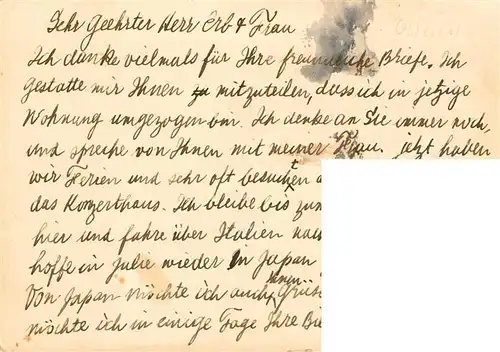 Sehr Geehrter Herr Erb & Frau
Ich danke vielmals für Ihre freundliche Briefe. Ich
gestatte mir Ihnen zu mitzuteilen, dass ich in jetzige
Wohnung umgezogen bin. Ich denke an Sie immer noch,
und spreche von Ihnen mit meiner Frau. jetzt haben
wir Ferien und sehr oft besuchten
das Konzerthaus. Ich bleibe bis zum
hier und fahre über Italien nach
hoffe in julie wieder in Japan
Von Japan möchte ich auch Ihnen Grüsse
möchte ich in einige Tage Ihre